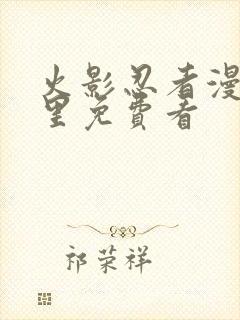 火影忍者漫
里免費看
祁荣祥